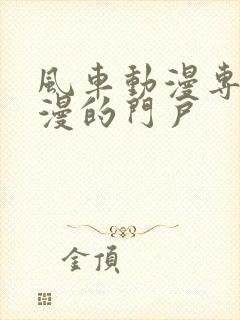 風車動漫專
漫的門戶
金頂